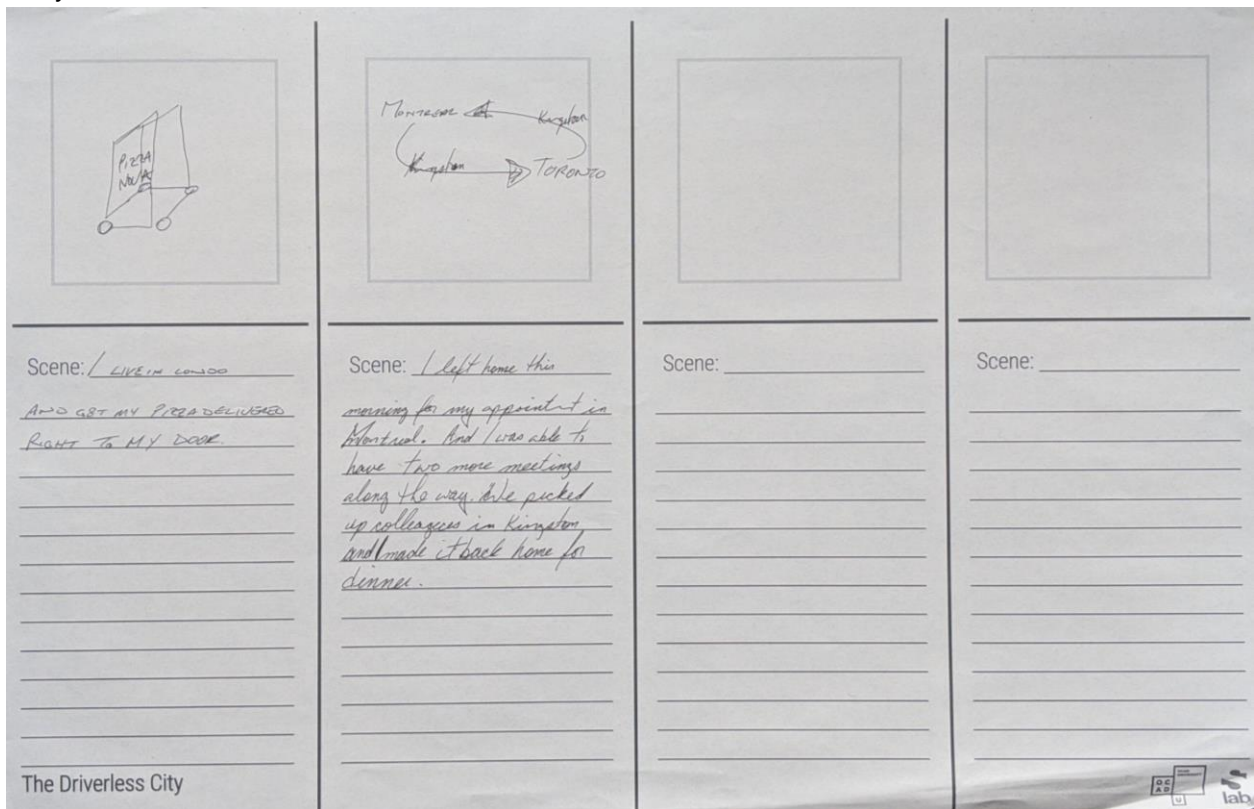 PIZZA
NOVA
MONTREAL
Kingston
Kingston
TORONTO
Scene: I LIVE IN CONDO
AND GET MY PIZZA DELIVERED
RIGHT TO MY DOOR.
Scene: I left home this
morning for my appointment in
Montreal. And I was able to
have two more meetings
along the way. We picked
up colleagues in Kingston
and I made it back home for
dinner.
Scene:
Scene:
The Driverless City
OCAD
U
lab